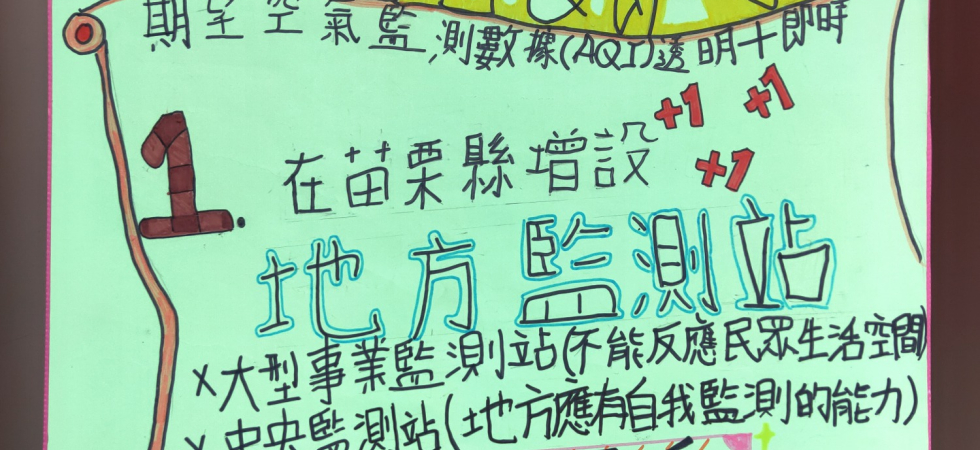 期望空氣監測數據(AQI)透明十即時
+1 +1
1. 在苗栗縣增設 +1
地方監測站
x大型事業監測站(不能反應民眾生活空間)
x中央監測站(地方應有自我監測的能力)